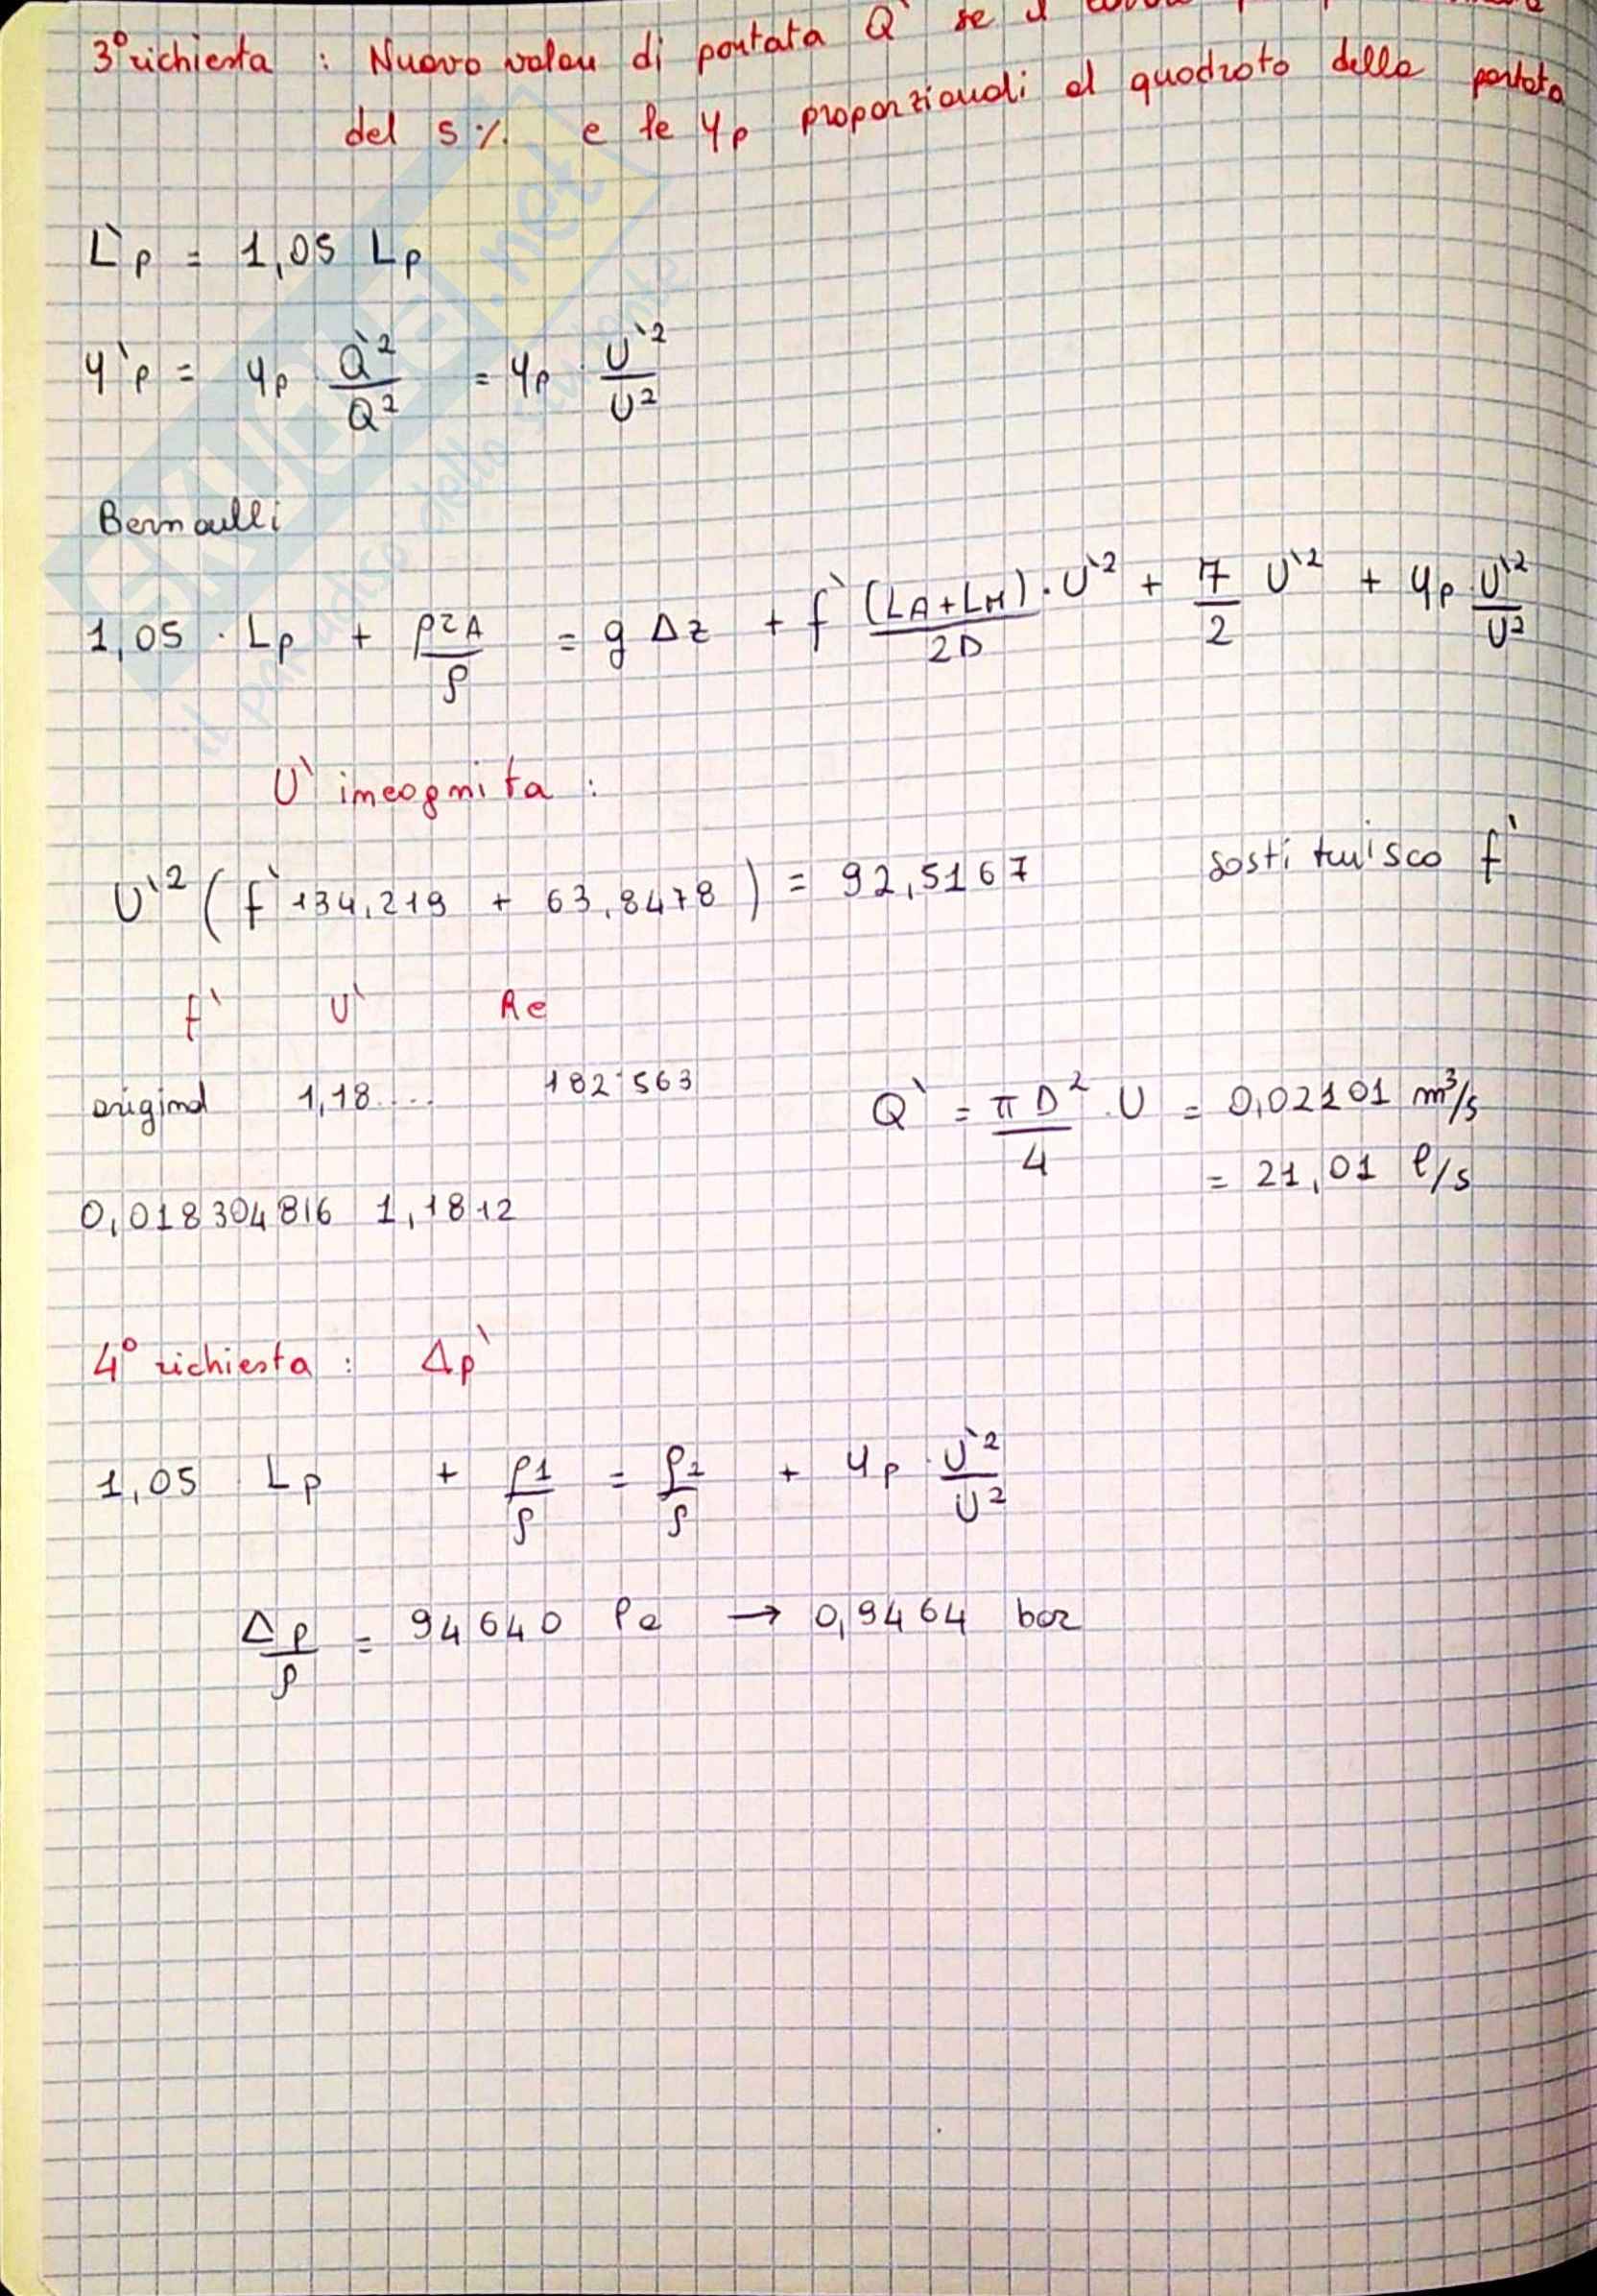 3° richiesta : Nuovo valore di portata Q` se il
del 5 % e le yp proporzionali al quadrato della portata
L`p = 1,05 Lp
y`p = yp · Q`² / Q² = yp · U`² / U²
Bernoulli
1,05 · Lp + p2A / ρ = g Δz + f` (LA + LM) / 2D · U`² + 7/2 U`² + yp · U`² / U²
U` incognita :
U`² ( f` 134,219 + 63,8478 ) = 92,5167 sostituisco f`
f` U` Re
original 1,18... 182·563
Q` = π D² / 4 · U = 0,02101 m³/s
= 21,01 l/s
0,018304816 1,1812
4° richiesta : Δp`
1,05 Lp + p1 / ρ = p2 / ρ + yp · U`² / U²
Δp / ρ = 94640 Pa → 0,9464 bar
SKUOLA.net
il paradiso dello studente